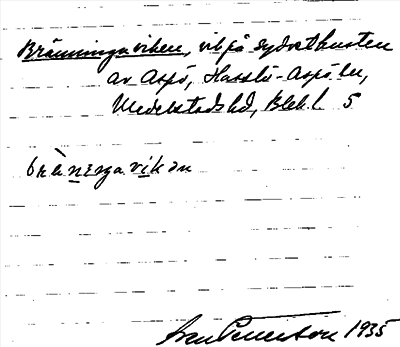 Bränningaviken, vik på sydostkusten
av Aspö, Hasslö-Aspö sn,
Medelstads hd, Blek. l. 5
bräningavikən
Petterson 1935